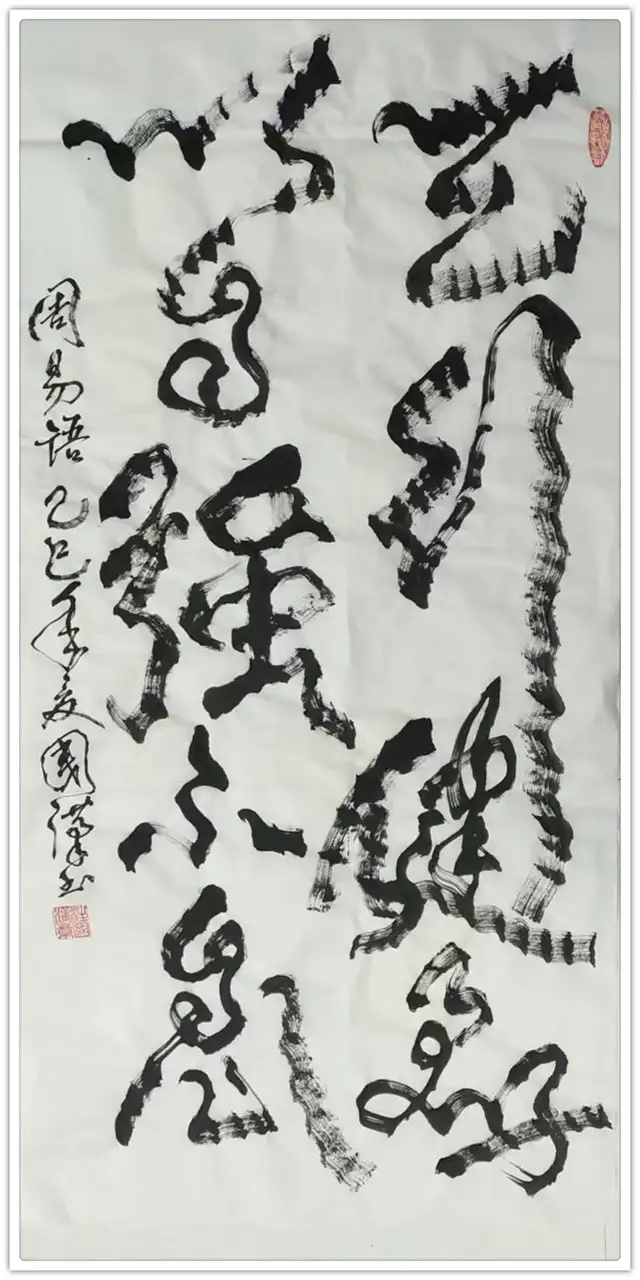 天行健君子
以自強不息
周易語乙巳年夏國漢书